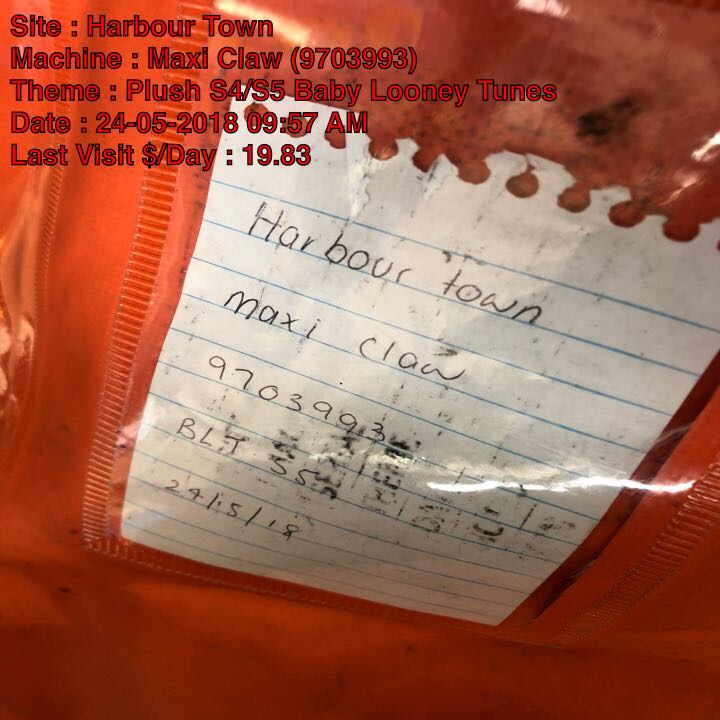 Site : Harbour Town
Machine : Maxi Claw (9703993)
Theme : Plush S4/S5 Baby Looney Tunes
Date : 24-05-2018 09:57 AM
Last Visit $/Day : 19.83
Harbour town
maxi claw
9703993
BLT S5
24/5/18